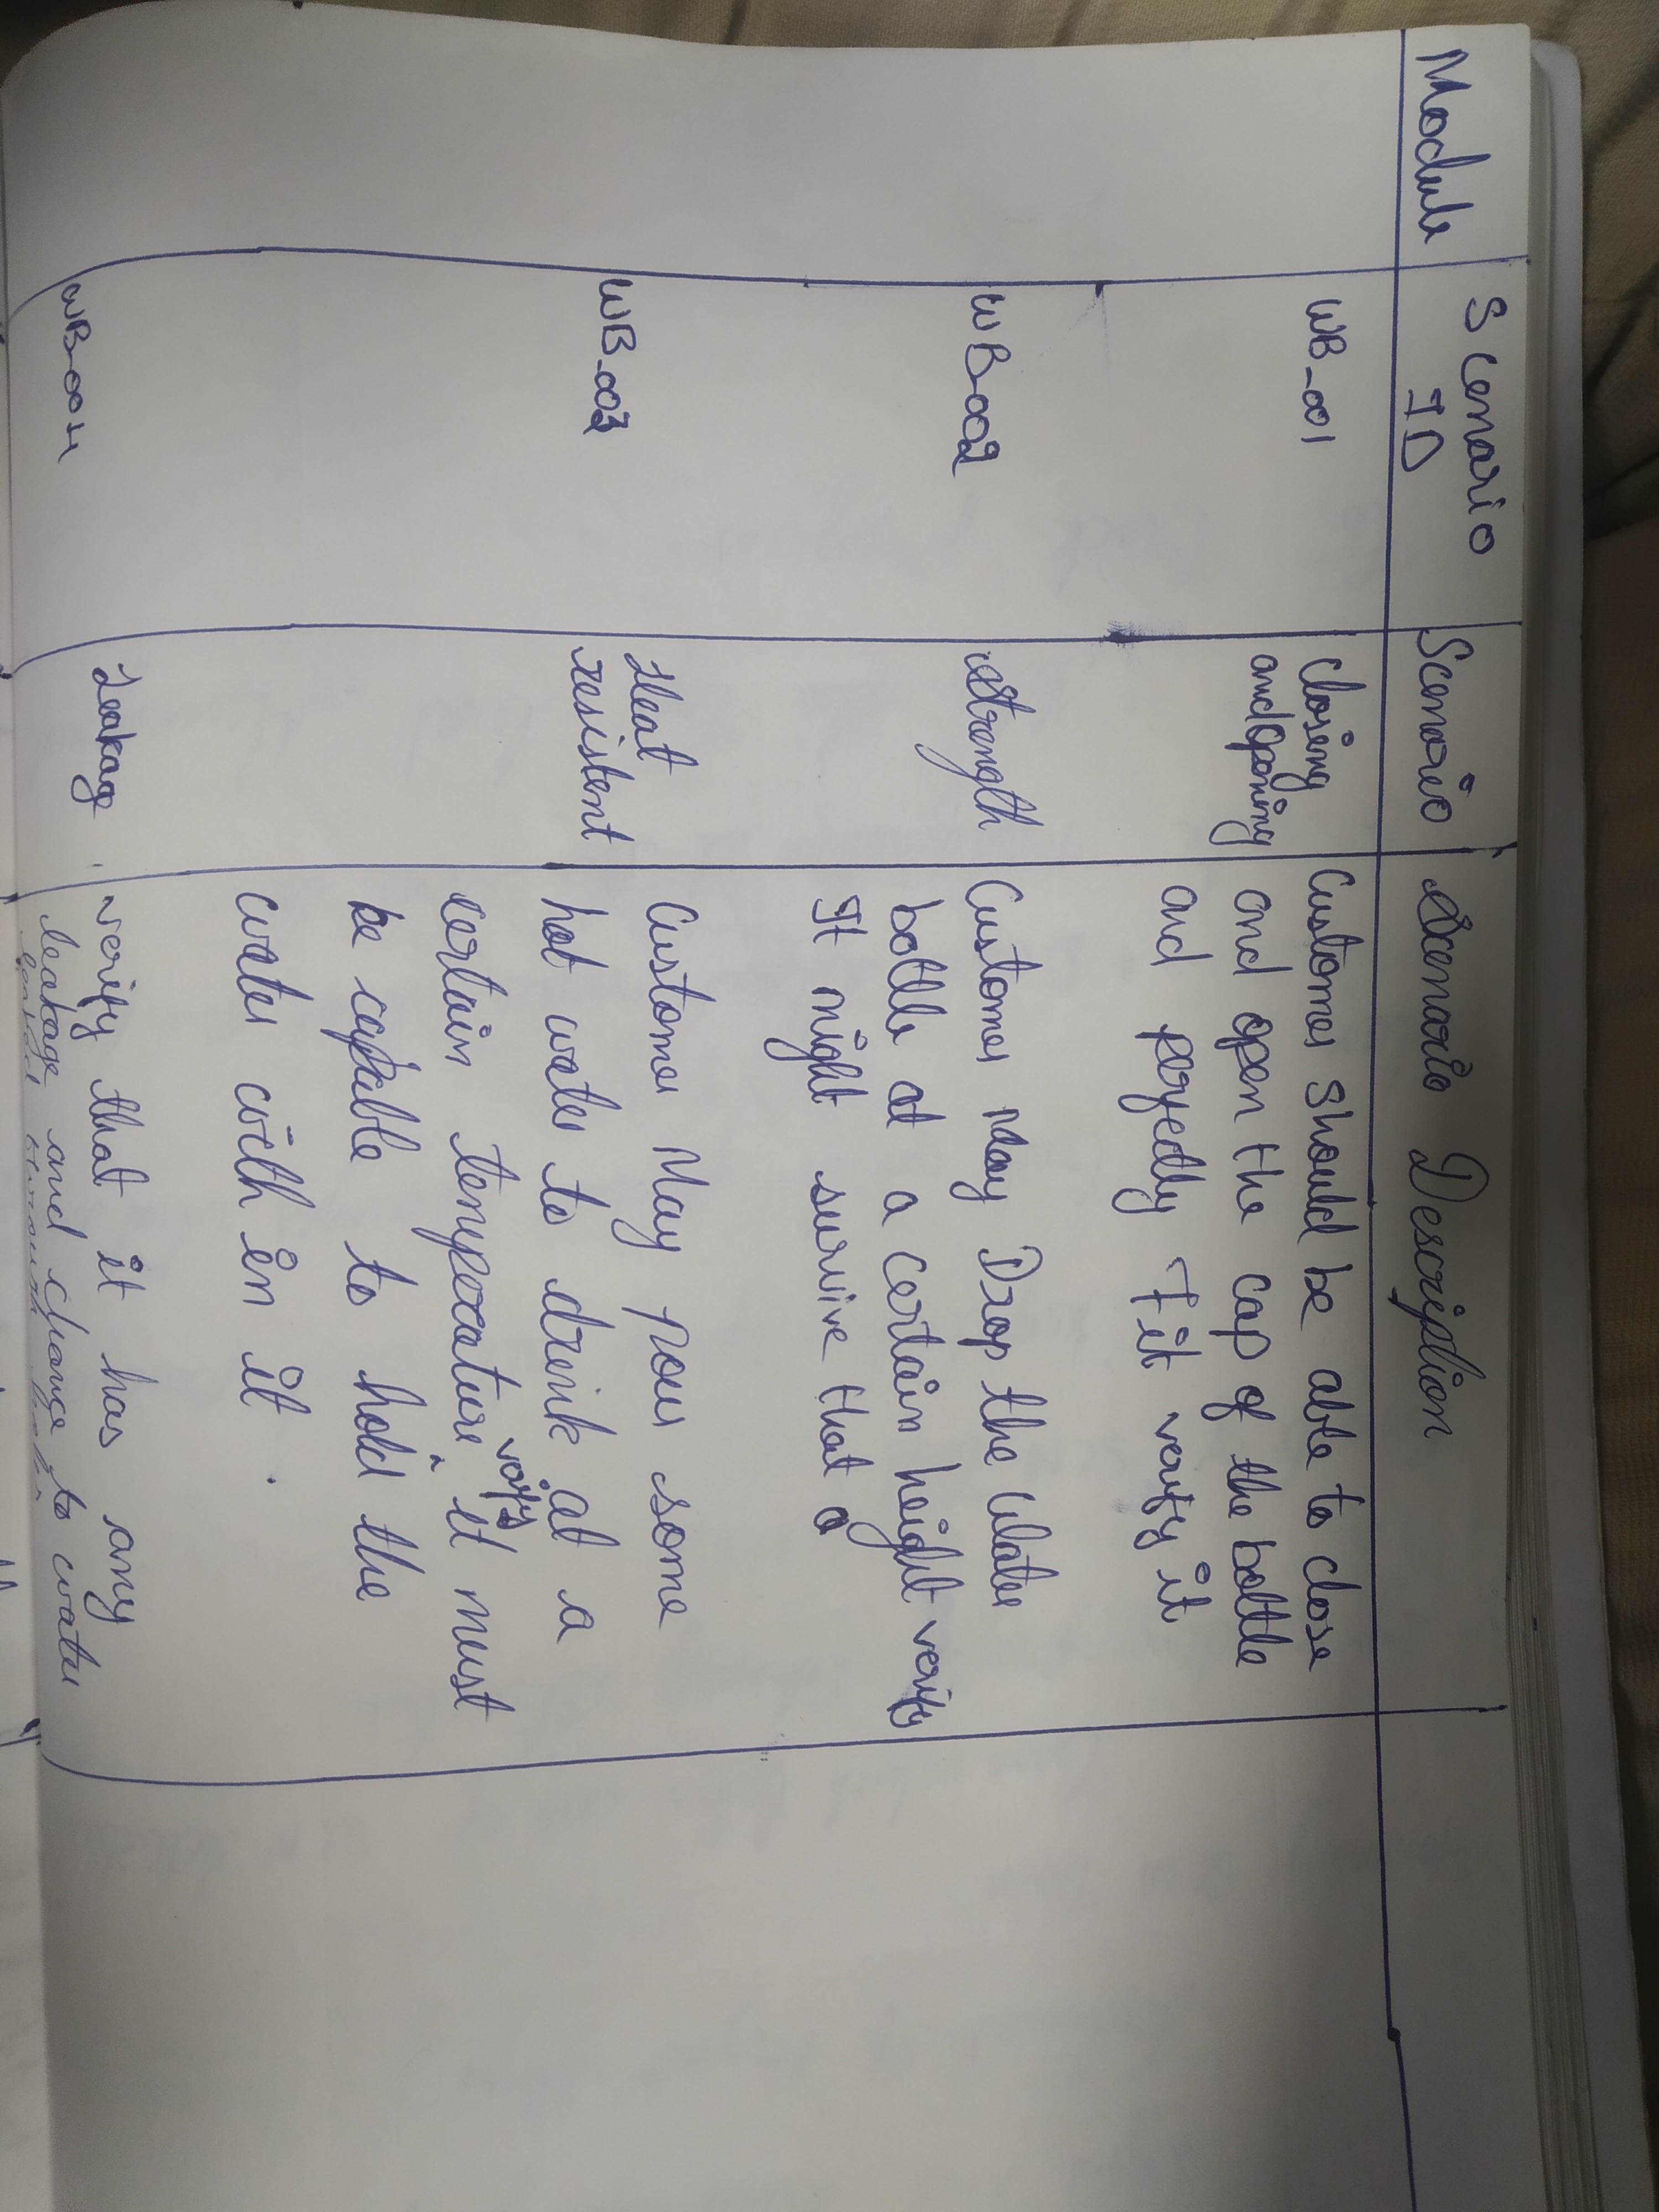 Module
Scenario
ID
Scenario
Scenario Description
WB_001
closing
and opening
Customer should be able to close
and open the cap of the bottle
and perfectly Fit verify it
WB_002
strength
Customer May Drop the Water
bottle at a certain height verify
It might survive that
WB_003
Heat
resistent
Customer May pour some
hot water to drink at a
certain temperature verify it must
be capable to hold the
water with in it .
WB_004
Leakage
verify that it has any
leakage and change to water